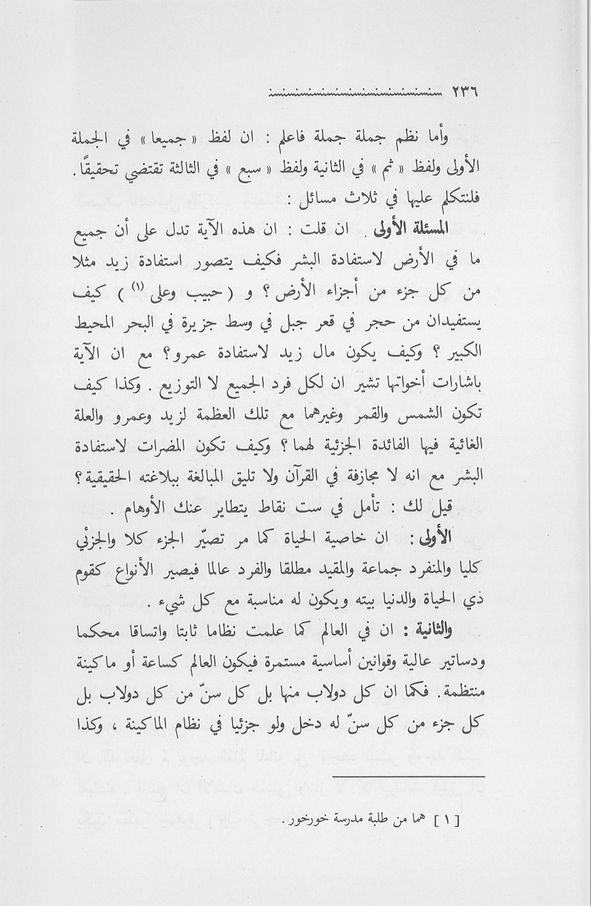 ٢٣٦
وأما نظم جملة جملة فاعلم : ان لفظ « جميعا » في الجملة
الأولى ولفظ « ثم » في الثانية ولفظ « سبع » في الثالثة تقتضي تحقيقًا .
فلنتكلم عليها في ثلاث مسائل :
المسئلة الأولى . ان قلت : ان هذه الآية تدل على أن جميع
ما في الأرض لاستفادة البشر فكيف يتصور استفادة زيد مثلا
من كل جزء من أجزاء الأرض ؟ و ( حبيب وعلى (١) ) كيف
يستفيدان من حجر في قعر جبل في وسط جزيرة في البحر المحيط
الكبير ؟ وكيف يكون مال زيد لاستفادة عمرو ؟ مع ان الآية
باشارات أخواتها تشير ان لكل فرد الجميع لا التوزيع . وكذا كيف
تكون الشمس والقمر وغيرهما مع تلك العظمة لزيد وعمرو والعلة
الغائية فيها الفائدة الجزئية لهما ؟ وكيف تكون المضرات لاستفادة
البشر مع انه لا مجازفة في القرآن ولا تليق المبالغة ببلاغته الحقيقية ؟
قيل لك : تأمل في ست نقاط يتطاير عنك الأوهام .
الأولى : ان خاصية الحياة كما مر تصيّر الجزء كلا والجزئي
كليا والمنفرد جماعة والمقيد مطلقا والفرد عالما فيصير الأنواع كقوم
ذي الحياة والدنيا بيته ويكون له مناسبة مع كل شيء .
والثانية : ان في العالم كما علمت نظاما ثابتا واتساقا محكما
ودساتير عالية وقوانين أساسية مستمرة فيكون العالم كساعة أو ماكينة
منتظمة . فكما ان كل دولاب منها بل كل سنّ من كل دولاب بل
كل جزء من كل سنّ له دخل ولو جزئيا في نظام الماكينة ، وكذا
[ ١ ] هما من طلبة مدرسة خورخور .